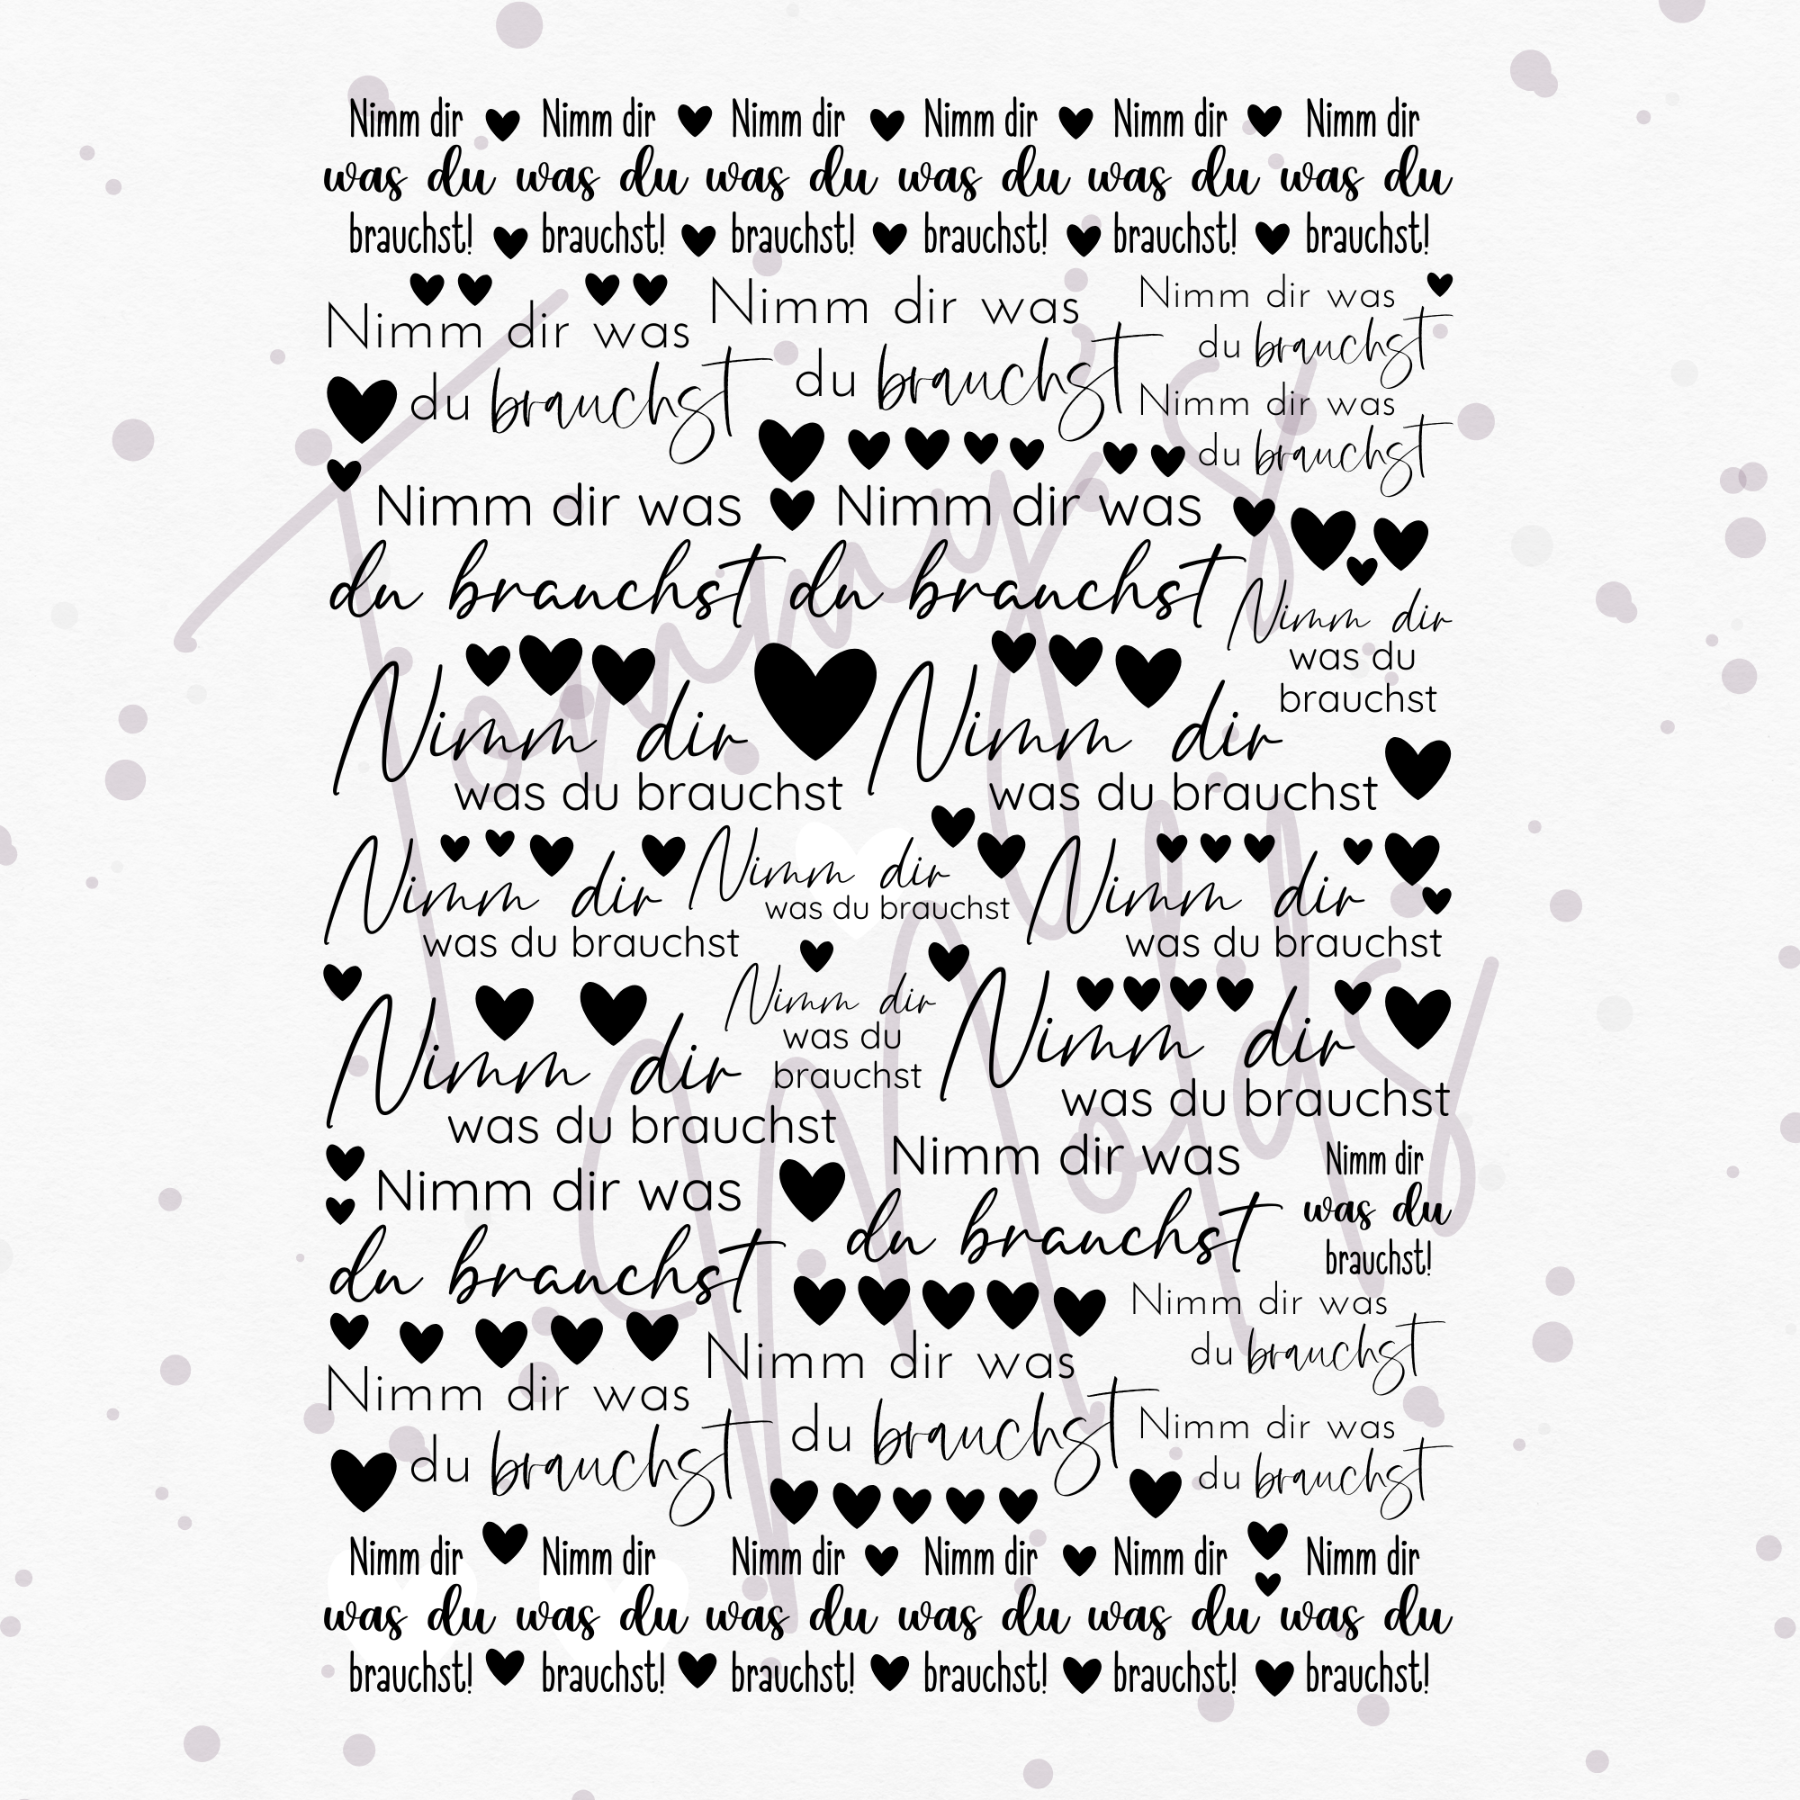 Nimm dir Nimm dir Nimm dir Nimm dir Nimm dir Nimm dir
was du was du was du was du was du was du
brauchst! brauchst! brauchst! brauchst! brauchst! brauchst!
Nimm dir was
du brauchst
Nimm dir was
du brauchst
Nimm dir was
du brauchst
Nimm dir was
du brauchst
Nimm dir was
du brauchst
Nimm dir was
du brauchst
Nimm dir
was du
brauchst
Nimm dir
was du brauchst
Nimm dir
was du brauchst
Nimm dir
was du brauchst
Nimm dir
was du brauchst
Nimm dir
was du brauchst
Nimm dir
was du brauchst
Nimm dir
was du
brauchst
Nimm dir
was du brauchst
Nimm dir was
du brauchst
Nimm dir was
du brauchst
Nimm dir
was du
brauchst!
Nimm dir was
du brauchst
Nimm dir was
du brauchst
Nimm dir was
du brauchst
Nimm dir was
du brauchst
Nimm dir Nimm dir Nimm dir Nimm dir Nimm dir Nimm dir
was du was du was du was du was du was du
brauchst! brauchst! brauchst! brauchst! brauchst! brauchst!
Tommy's
Molds